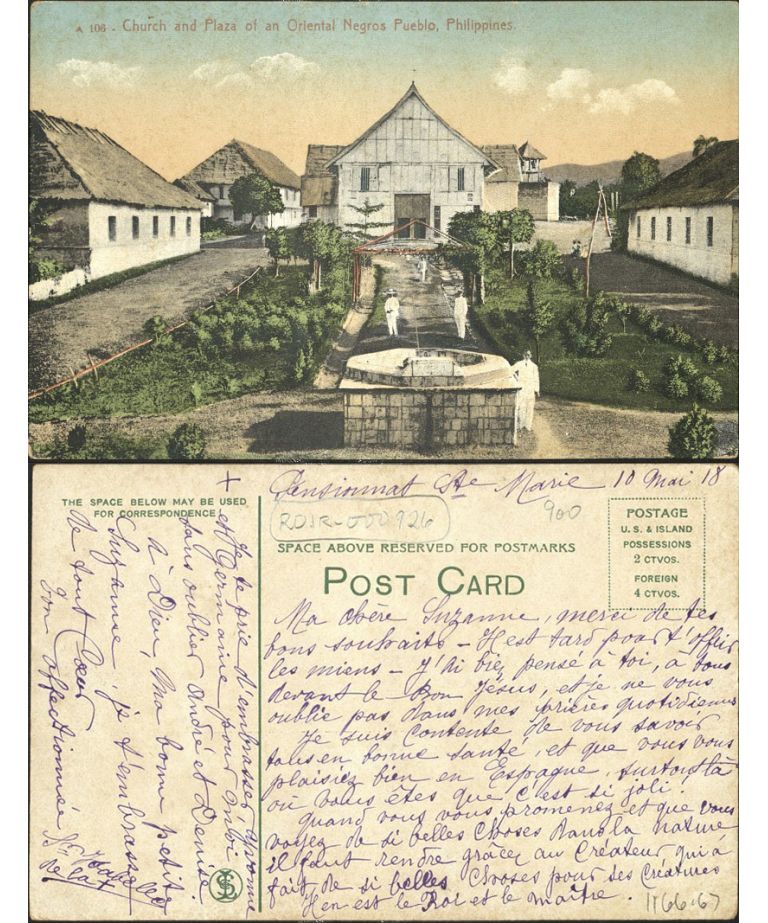 A 106 - Church and Plaza of an Oriental Negros Pueblo, Philippines.
THE SPACE BELOW MAY BE USED
FOR CORRESPONDENCE
+
Pensionnat Ste Marie 10 Mai 18
RDJR-000926
900
SPACE ABOVE RESERVED FOR POSTMARKS
POST CARD
POSTAGE
U.S. & ISLAND
POSSESSIONS
2 CTVOS.
FOREIGN
4 CTVOS.
Ma chère Suzanne, merci de tes
bons souhaits - Il est tard pour t'offrir
les miens - J'ai bien pensé à toi, à tous
devant le Bon Jésus, et je ne vous
oublie pas dans mes prières quotidiennes
Je suis contente de vous savoir
tous en bonne santé, et que vous vous
plaisiez bien en Espagne, surtout là
où vous êtes que c'est si joli.
quand vous vous promenez et que vous
voyez de si belles choses dans la nature,
il faut rendre grâces au Créateur qui a
fait de si belles choses pour ses créatures
Il en est le Roi et le maître.
1166-67
Je te prie d'embrasser Yvonne
et Germaine pour moi
sans oublier André et Denise.
à Dieu, Ma bonne petite
Suzanne, je t'embrasse
de tout Cœur
Ton affectionnée Sr Isabelle